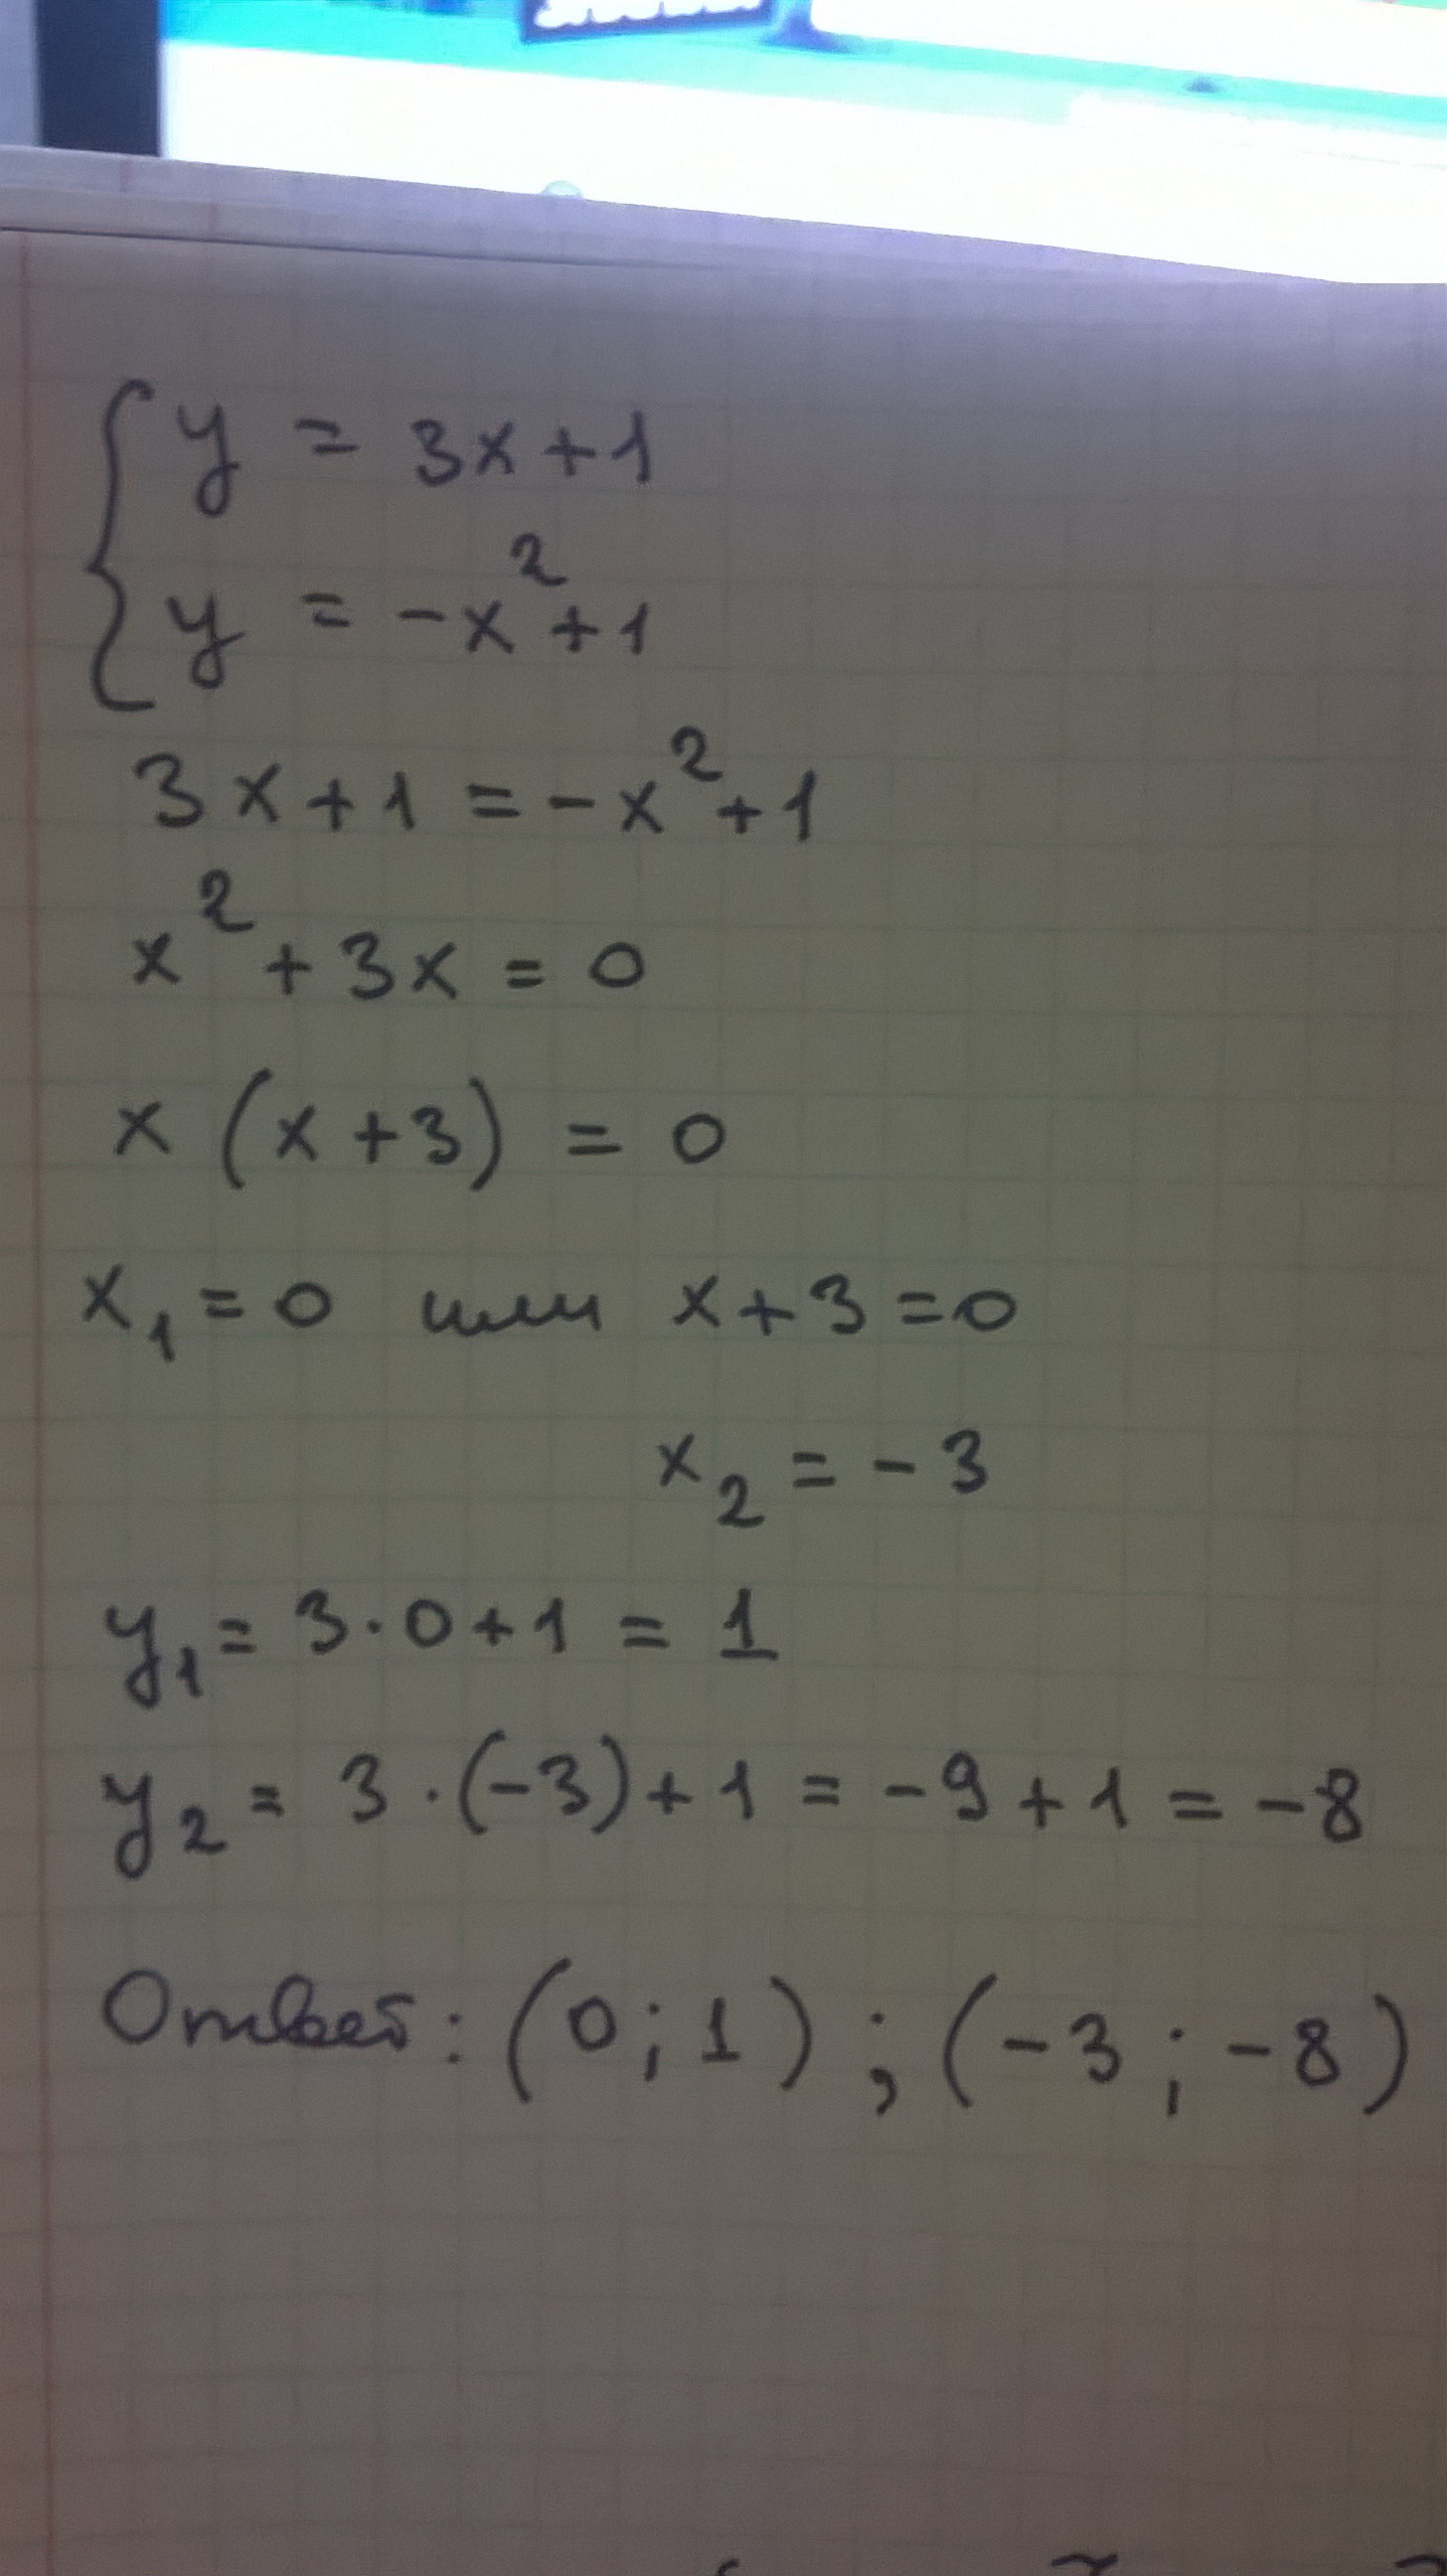 { y = 3x+1
y = -x²+1
3x+1 = -x²+1
x²+3x = 0
x(x+3) = 0
x₁=0 или x+3=0
x₂ = -3
y₁ = 3·0+1 = 1
y₂ = 3·(-3)+1 = -9+1 = -8
Ответ: (0;1); (-3;-8)